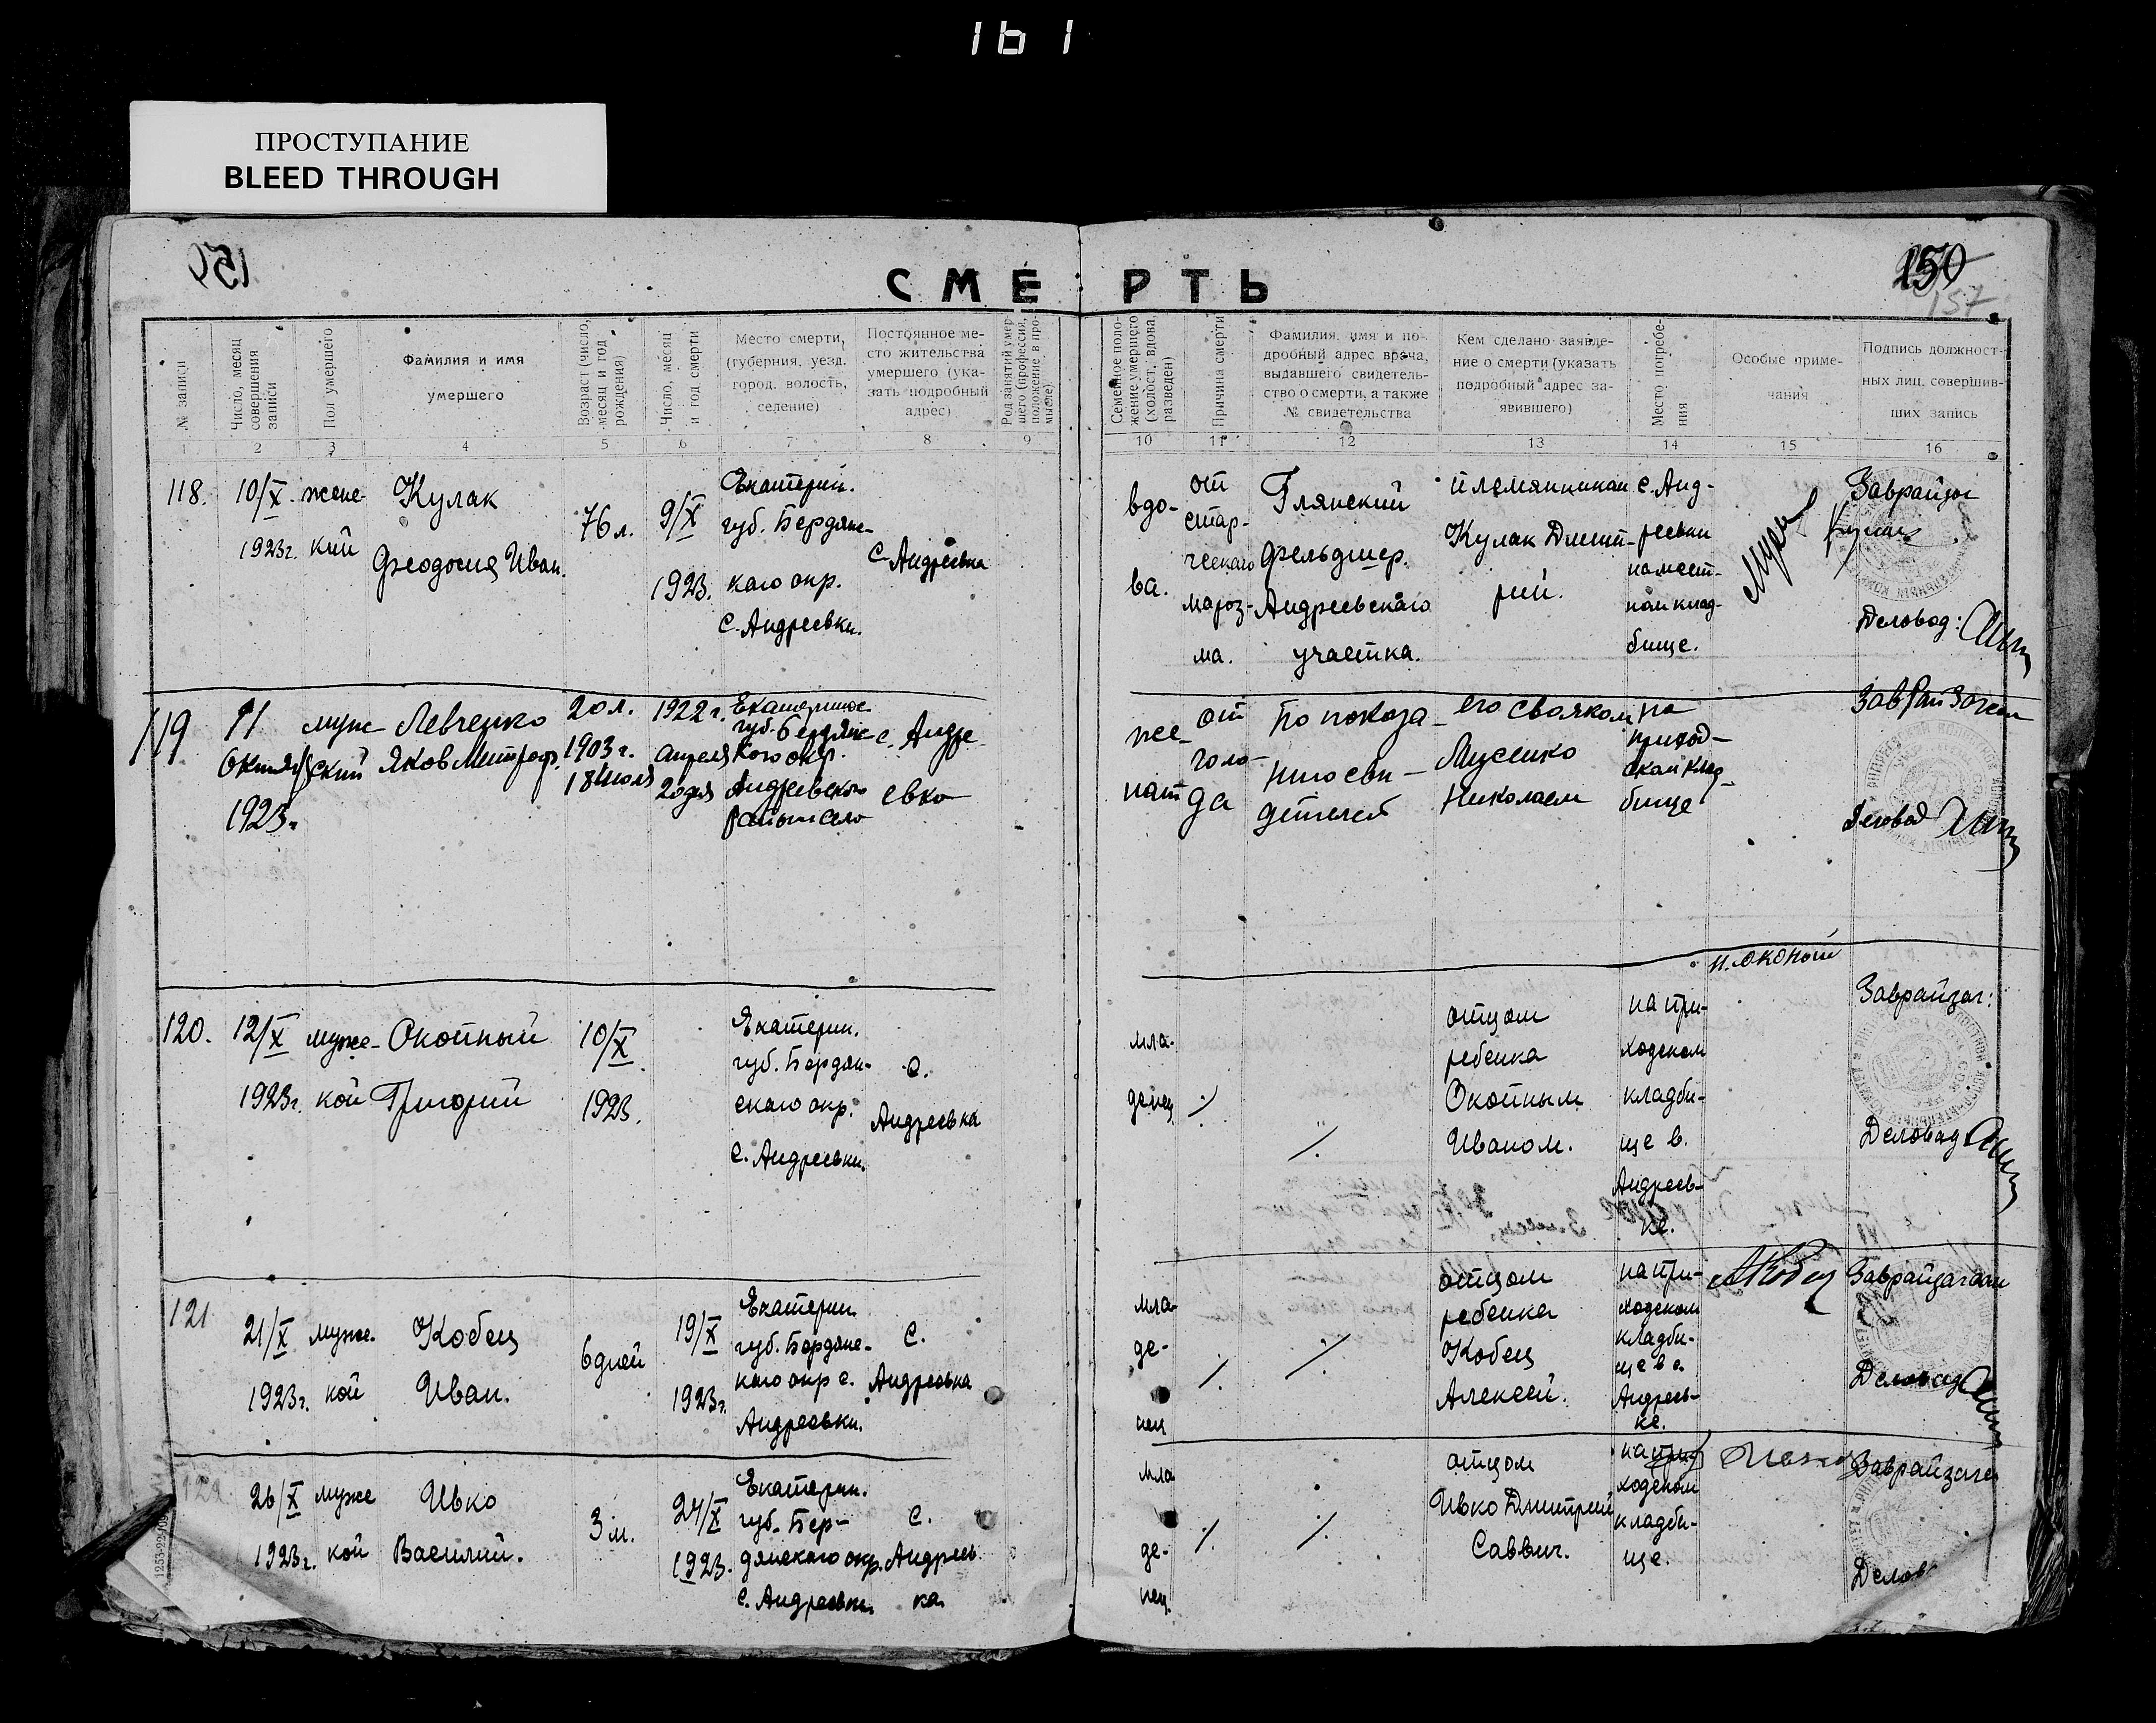 161
ПРОСТУПАНИЕ
BLEED THROUGH
150
157
СМЕРТЬ
№ записи
Число, месяц совершения записи
Пол умершего
Фамилия и имя
умершего
Возраст (число, месяц и год рождения)
Число, месяц и год смерти
Место смерти,
(губерния, уезд.
город, волость,
селение)
Постоянное ме-
сто жительства
умершего (ука-
зать подробный
адрес)
Род занятий умер-
шего (профессия,
положение в про-
мысле)
Семейное поло-
жение умершего
(холост, вдова,
разведен)
Причина смерти
Фамилия, имя и по-
дробный адрес врача,
выдавшего свидетель-
ство о смерти, а также
№ свидетельства
Кем сделано заявле-
ние о смерти (указать
подробный адрес за-
явившего)
Место погребе-
ния
Особые приме-
чания
Подпись должност-
ных лиц, совершив-
ших запись
1 2 3 4 5 6 7 8 9 10 11 12 13 14 15 16
118.
10/X
1923г.
женс-
кий
Кулак
Феодосия Иван.
76 л.
9/X
1923.
Екатерин.
губ. Бердянс-
каго окр.
С. Андреевки.
С. Андреевка
вдо-
ва.
от
стар-
ческаго
мароз-
ма.
Глянский
фельдшер.
Андреевскаго
участка.
племянником
Кулак Дмит-
рий.
с. Анд-
реевки
на мест-
ном клад-
бище.
Заврайзаг
Деловод:
119
11
Октяб
1923г.
муж
ский
Левченко
Яков Митроф.
20 л.
1903 г.
18 июля
1922 г.
апреля
20 дня
Екатеринос
губ. Бердянс
кого окр.
Андреевского
район село
с. Андре
евка
же-
нат
от
голо-
да
По показа-
нию сви-
детелей
его свояком
Мусенко
Николаем
на
приход-
ском клад-
бище
ЗавРайЗагсом
Деловод
120.
12/X
1923г.
мужс-
кой
Окопный
Григорий
10/X
1923.
Екатерин.
губ. Бердян-
скаго окр.
С. Андреевки.
С.
Андреевка
мла-
денец
%
%
отцом
ребенка
Окопным
Иваном.
на при-
ходском
кладби-
ще в.
Андреев-
ке.
И. Окопый
Заврайзаг:
Деловод
121
21/X
1923г.
мужс.
кой
Кобец
Иван.
6 дней
19/X
1923г.
Екатерин.
губ. Бердянс-
каго окр с.
Андреевки.
С.
Андреевка
мла-
де-
нец
%
%
отцом
ребенка
Кобец
Алексей.
на при-
ходском
кладби-
ще в с.
Андреев-
ке.
АКобец
Заврайзагсом
Деловод
122
26/X
1923г.
мужс
кой
Ивко
Василий.
3 м.
24/X
1923.
Екатерин.
губ. Бер-
дянскаго окр.
С. Андреевки.
С.
Андреев
ка
мла
де-
нец
%
%
отцом
Ивко Дмитрий
Саввич.
на при
ходском
кладби-
ще.
Заврайзагс
Делов